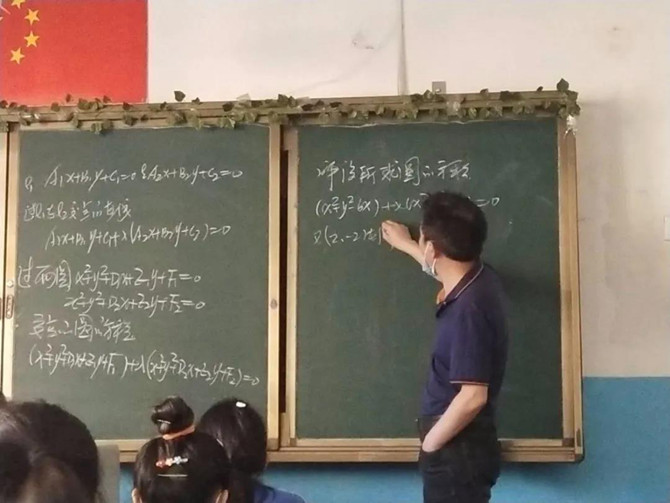 A₁x+B₁y+C₁=0 A₂x+B₂y+C₂=0
A₁x+B₁y+C₁+λ(A₂x+B₂y+C₂)=0
过两圆x²+y²+D₁x+E₁y+F₁=0
x²+y²+D₂x+E₂y+F₂=0
交点的圆的方程
(x²+y²+D₁x+E₁y+F₁)+λ(x²+y²+D₂x+E₂y+F₂)=0
解设所求圆的方程
(x²+y²-6x)+λ(x² =0
(2,-2)